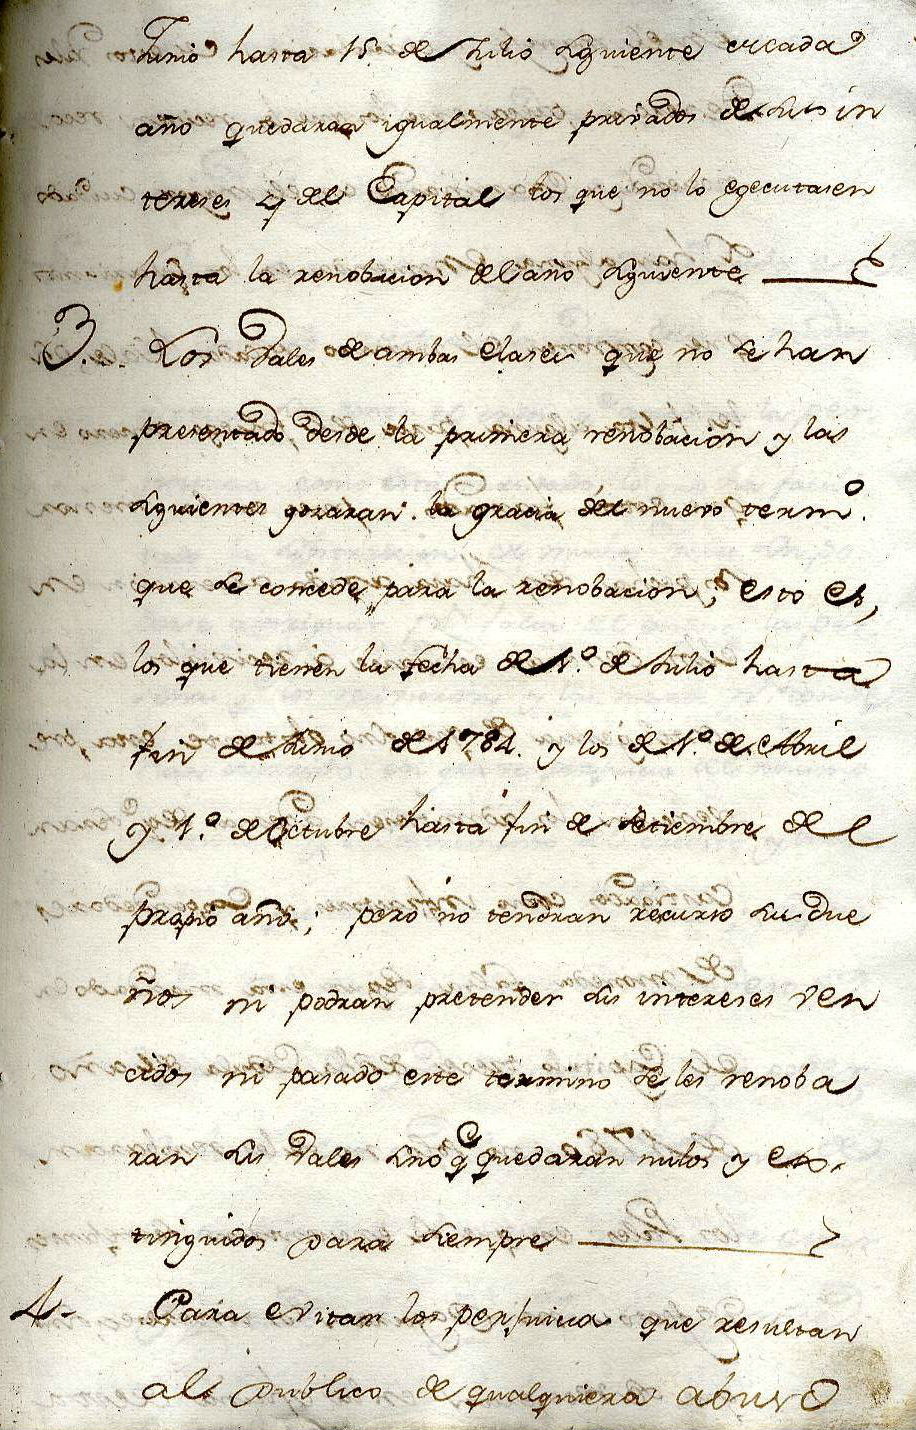 Junio hasta 15. de Julio siguiente en cada
año quedaran igualmente privados de sus in
tereses y del Capital los que no lo egecutasen
hasta la renobacion del año siguiente
3. Los Vales de ambas clases que no se han
presentado desde la primera renobacion y las
siguientes gozaran la gracia del nuevo termº.
que se concede para la renobacion; esto es,
los que tienen la fecha de 1º. de Julio hasta
fin de Junio de 1784. y los de 1º. de Abril
y 1º. de Octubre hasta fin de Setiembre del
propio año; pero no tendran recurso sus due
ños ni podran pretender sus intereses ven
cidos ni pasado este termino se les renoba
ran sus Vales sino q quedaran nulos y ex-
tinguidos para siempre
4- Para evitar los perjuicios que resultan
al publico de qualquiera abuso